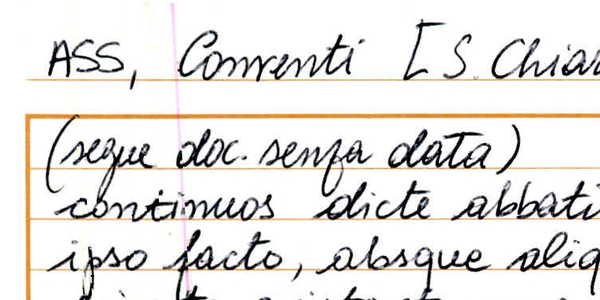 ASS, Conventi [S. Chiar
(segue doc. senza data)
continuos dicte abbati
ipso facto, absque aliq